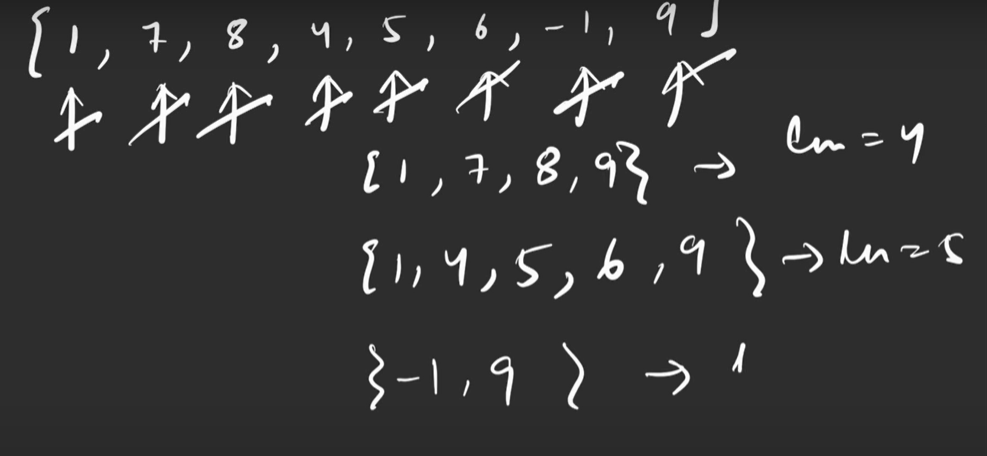 {1, 7, 8, 4, 5, 6, -1, 9}
{1, 7, 8, 9} → len = 4
{1, 4, 5, 6, 9} → len = 5
{-1, 9} → 1